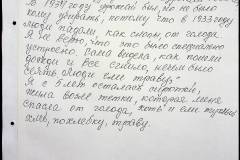 В 1934 году урожай был, но не было
кому убирать, потому что в 1933 году
люди падали, как снопы, от голода
Я не верю, что это было специально
устроено. Мама видела, как пошли
дожди и все сгнило, нечем было
сеять. Люди ели траву."
Я с 5 лет осталась сиротой,
жила возле тетки, которая меня
спасла от голода, хотя и ели
хлеб, похлебку, траву.